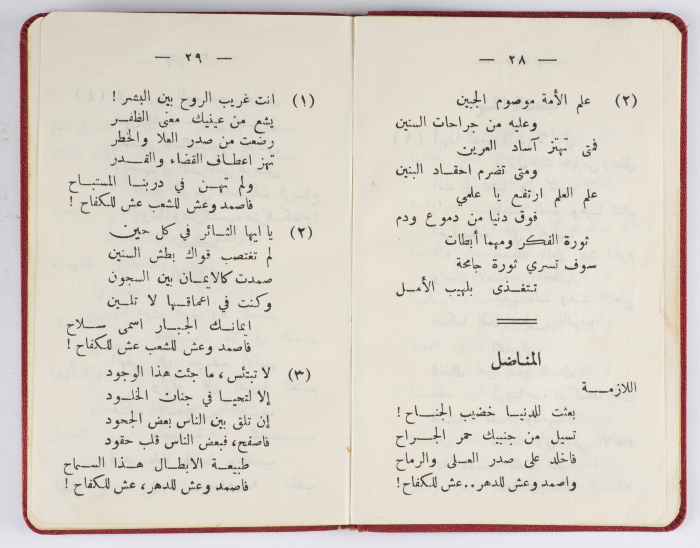 — ٢٨ —
(٢) علم الأمة موصوم الجبين
وعليه من جراحات السنين
فمتى تهتز آساد العرين
ومتى تضرم احقاد البنين
علم العلم ارتفع يا علمي
فوق دنيا من دموع ودم
ثورة الفكر ومهما أبطات
سوف تسري ثورة جامحة
تتغذى بلهيب الأمل
المناضل
اللازمة
بعثت للدنيا خضيب الجناح !
تسيل من جنبيك حمر الجراح
فاخلد على صدر العلى والرماح
واصمد وعش للدهر .. عش للكفاح !
— ٢٩ —
(١) انت غريب الروح بين البشر !
يشع من عينيك معنى الظفر
رضعت من صدر العلا والخطر
تهز اعطاف القضاء والقدر
ولم تهن في دربنا المستباح
فاصمد وعش للشعب عش للكفاح !
(٢) يا ايها الثائر في كل حين
لم تغتصب قواك بطش السنين
صمدت كالايمان بين السجون
وكنت في اعماقها لا تلين
ايمانك الجبار اسمى سلاح
فاصمد وعش للشعب عش للكفاح !
(٣) لا تبتئس ، ما جئت هذا الوجود
إلا لتحيا في جنات الخلود
إن تلق بين الناس بعض الجحود
فاصفح ، فبعض الناس قلب حقود
طبيعة الابطال هذا السماح
فاصمد وعش للدهر ، عش للكفاح !